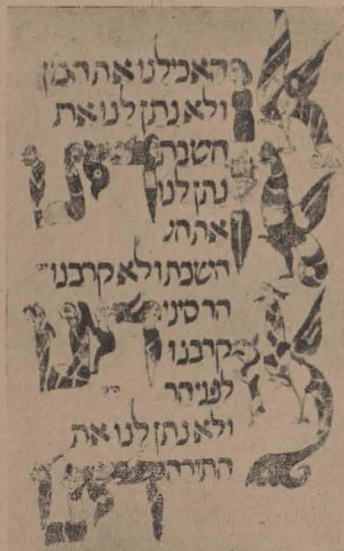 האכילנו את המן
ולא נתן לנו את
השבת דינו
נתן לנו
את
השבת ולא קרבנו
הר סיני דינו
קרבנו
לפני הר
ולא נתן לנו את
התורה דינו